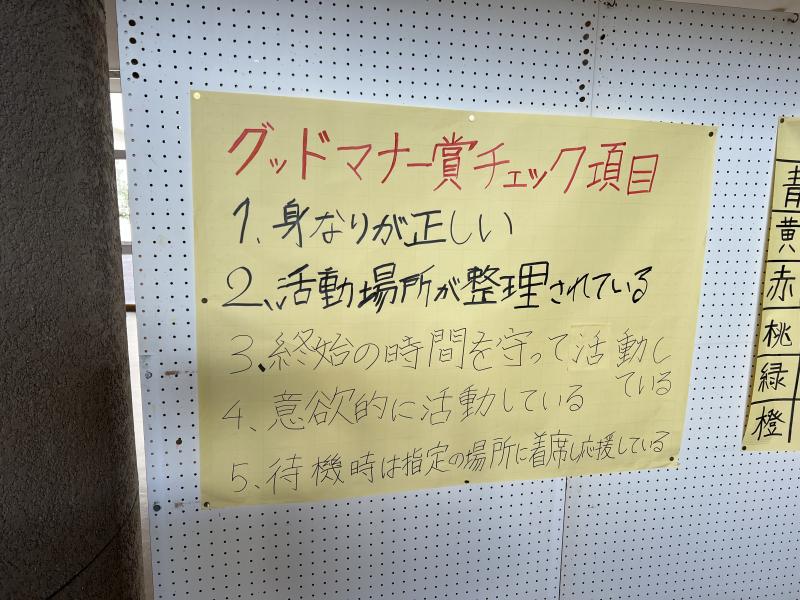 グッドマナー賞チェック項目
1、身なりが正しい
2、活動場所が整理されている
3、終始の時間を守って活動し
ている
4、意欲的に活動している
5、待機時は指定の場所に着席し応援している
青
黄
赤
桃
緑
橙